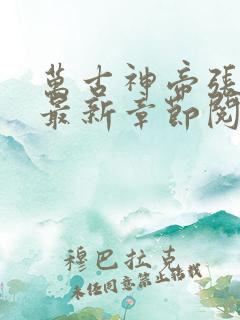 萬古神帝張
最新章節閱
穆巴拉克
未經同意禁止轉載